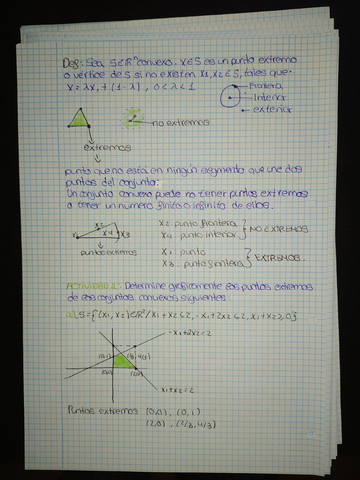 Def: Sea S⊆ℝⁿ convexo. x∈S es un punto extremo
o vértice de S si no existen x1, x2 ∈ S, tales que
x = λx1 + (1-λ) , 0<λ<1
Frontera
Interior
exterior
no extremos
extremos
punto que no esta en ningún segmento que une dos
puntos del conjunto.
Un conjunto convexo puede no tener puntos extremos
o tener un número finito o infinito de ellos.
x2
x1
x4
x3
puntos extremos
x2: punto frontera
x4: punto interior
NO EXTREMOS
x1: punto
x3: punto frontera
EXTREMOS
Determine gráficamente los puntos extremos
de los conjuntos convexos siguientes
a) S={(x1, x2)∈ℝ²/x1+x2≤2, -x1+2x2≤2, x1,x2≥0}
-x1+2x2=2
(0,1)
(0,0)
(2,0)
x1+x2=2
Puntos extremos (0,0), (0,1)
(2,0), (2/3, 4/3)